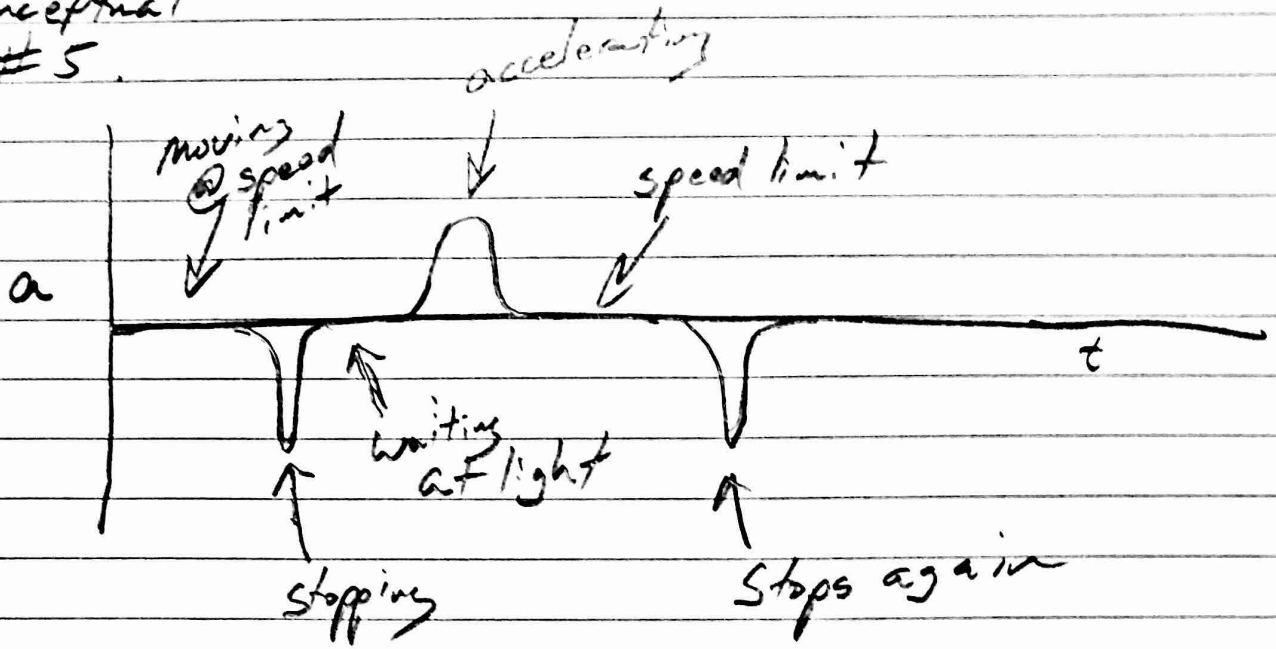 #5.
accelerating
moving
@ speed
limit
speed limit
a
t
waiting
at light
stopping
Stops again